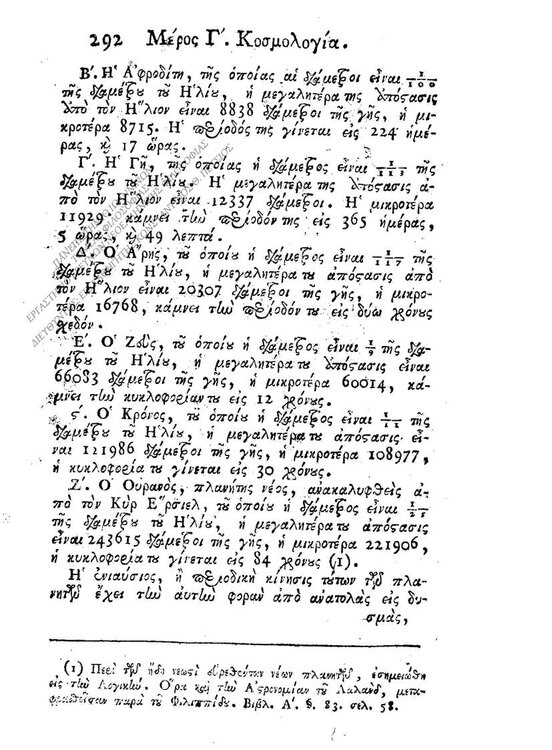 292 Μέρος Γ΄. Κοσμολογία.
Β΄. Ἡ Ἀφροδίτη, τῆς ὁποίας αἱ διάμετροι εἶναι 1/100
τῆς διαμέτρου τοῦ Ἡλίου, ἡ μεγαλητέρα της ἀπόστασις
ἀπὸ τὸν Ἥλιον εἶναι 8838 διάμετροι τῆς γῆς, ἡ μι-
κροτέρα 8715. Ἡ περίοδός της γίνεται εἰς 224 ἡμέ-
ρας, καὶ 17 ὥρας.
Γ΄. Ἡ Γῆ, τῆς ὁποίας ἡ διάμετρος εἶναι τῆς
διαμέτρου τοῦ Ἡλίου. Ἡ μεγαλητέρα της ἀπόστασις ἀ-
πὸ τὸν Ἥλιον εἶναι 12337 διάμετροι. Ἡ μικροτέρα
11929· κάμνει τὴν περίοδόν της εἰς 365 ἡμέρας,
5 ὥρας, καὶ 49 λεπτά.
Δ΄. Ὁ Ἄρης, τοῦ ὁποίου ἡ διάμετρος εἶναι τῆς
διαμέτρου τοῦ Ἡλίου, ἡ μεγαλητέρα του ἀπόστασις ἀπὸ
τὸν Ἥλιον εἶναι 20307 διάμετροι τῆς γῆς, ἡ μικρο-
τέρα 16768, κάμνει τὴν περίοδόν του εἰς δύω χρόνους
σχεδόν.
Ε΄. Ὁ Ζεὺς, τοῦ ὁποίου ἡ διάμετρος εἶναι 1/9 τῆς δια-
μέτρου τοῦ Ἡλίου, ἡ μεγαλητέρα του ἀπόστασις εἶναι
66083 διάμετροι τῆς γῆς, ἡ μικροτέρα 60014, κά-
μνει τὴν κυκλοφορίαν του εἰς 12 χρόνους.
ϛ΄. Ὁ Κρόνος, τοῦ ὁποίου ἡ διάμετρος εἶναι 1/11 τῆς
διαμέτρου τοῦ Ἡλίου, ἡ μεγαλητέρα του ἀπόστασις εἶ-
ναι 121986 διάμετροι τῆς γῆς, ἡ μικροτέρα 108977,
ἡ κυκλοφορία του γίνεται εἰς 30 χρόνους.
Ζ΄. Ὁ Οὐρανὸς, πλανήτης νέος, ἀνακαλυφθεὶς ἀ-
πὸ τὸν Κὺρ Ἔρσιελ, τοῦ ὁποίου ἡ διάμετρος εἶναι
τῆς διαμέτρου τοῦ Ἡλίου, ἡ μεγαλητέρα του ἀπόστασις
εἶναι 243615 διάμετροι τῆς γῆς, ἡ μικροτέρα 221906,
ἡ κυκλοφορία του γίνεται εἰς 84 χρόνους (1).
Ἡ ἐνιαύσιος, ἢ περιοδικὴ κίνησις τούτων τῶν πλα-
νητῶν ἔχει τὴν αὐτὴν φορὰν ἀπὸ ἀνατολὰς εἰς δυ-
σμὰς,
(1) Περὶ τῶν ἤδη νεωστὶ εὑρεθέντων νέων πλανητῶν, ἐσημειώθη
εἰς τὴν Λογικήν. Ὅρα καὶ τὴν Ἀστρονομίαν τοῦ Λαλὰνδ, μετα-
φρασθεῖσαν παρὰ τοῦ Φιλιππίδου. Βιβλ. Α΄. §. 83. σελ. 58.